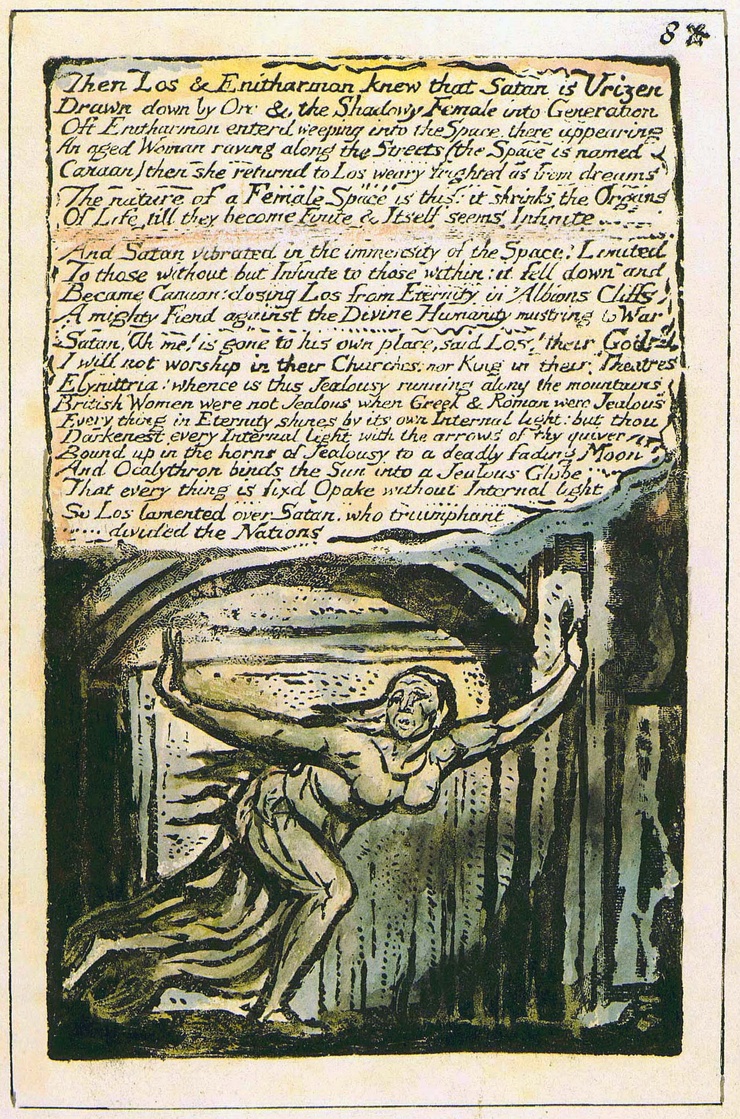 8*
Then Los & Enitharmon knew that Satan is Urizen
Drawn down by Orc & the Shadowy Female into Generation
Oft Enitharmon enterd weeping into the Space, there appearing
An aged Woman raving along the Streets (the Space is named
Canaan) then she returnd to Los weary frighted as from dreams
The nature of a Female Space is this: it shrinks the Organs
Of Life till they become Finite & Itself seems Infinite
And Satan vibrated in the immensity of the Space! Limited
To those without but Infinite to those within: it fell down and
Became Canaan: closing Los from Eternity in Albions Cliffs
A mighty Fiend against the Divine Humanity mustring to War
Satan, Ah me! is gone to his own place, said Los! their God
I will not worship in their Churches, nor King in their Theatres
Elynittria! whence is this Jealousy running along the mountains
British Women were not Jealous when Greek & Roman were Jealous
Every thing in Eternity shines by its own Internal light: but thou
Darkenest every Internal light with the arrows of thy quiver
Bound up in the horns of Jealousy to a deadly fading Moon
And Ocalythron binds the Sun into a Jealous Globe
That every thing is fixd Opake without Internal light
So Los lamented over Satan, who triumphant
divided the Nations